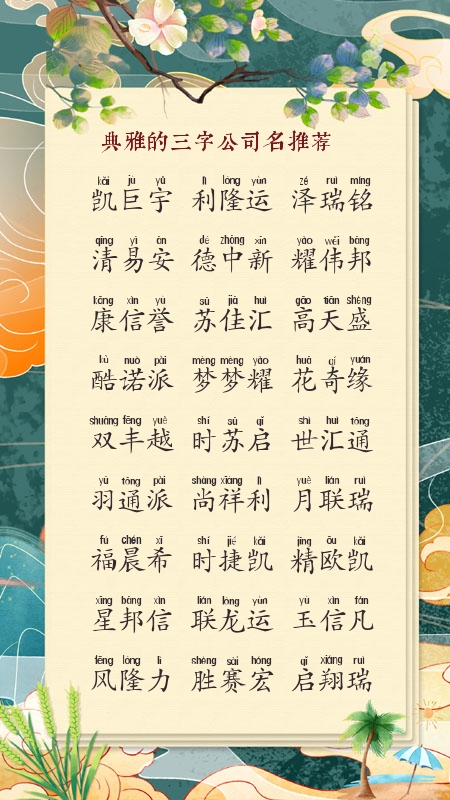 典雅的三字公司名推荐
kǎi jù yǔ lì lóng yùn zé ruì míng
凯巨宇 利隆运 泽瑞铭
qīng yì ān dé zhōng xīn yào wěi bāng
清易安 德中新 耀伟邦
kāng xìn yù sū jiā huì gāo tiān shèng
康信誉 苏佳汇 高天盛
kù nuò pài mèng mèng yào huā qí yuán
酷诺派 梦梦耀 花奇缘
shuāng fēng yuè shí sū qǐ shì huì tōng
双丰越 时苏启 世汇通
yǔ tōng pài shàng xiáng lì yuè lián ruì
羽通派 尚祥利 月联瑞
fú chén xī shí jié kǎi jīng ōu kǎi
福晨希 时捷凯 精欧凯
xīng bāng xìn lián lóng yùn yù xìn fán
星邦信 联龙运 玉信凡
fēng lóng lì shèng sài hóng qǐ xiáng ruì
风隆力 胜赛宏 启翔瑞